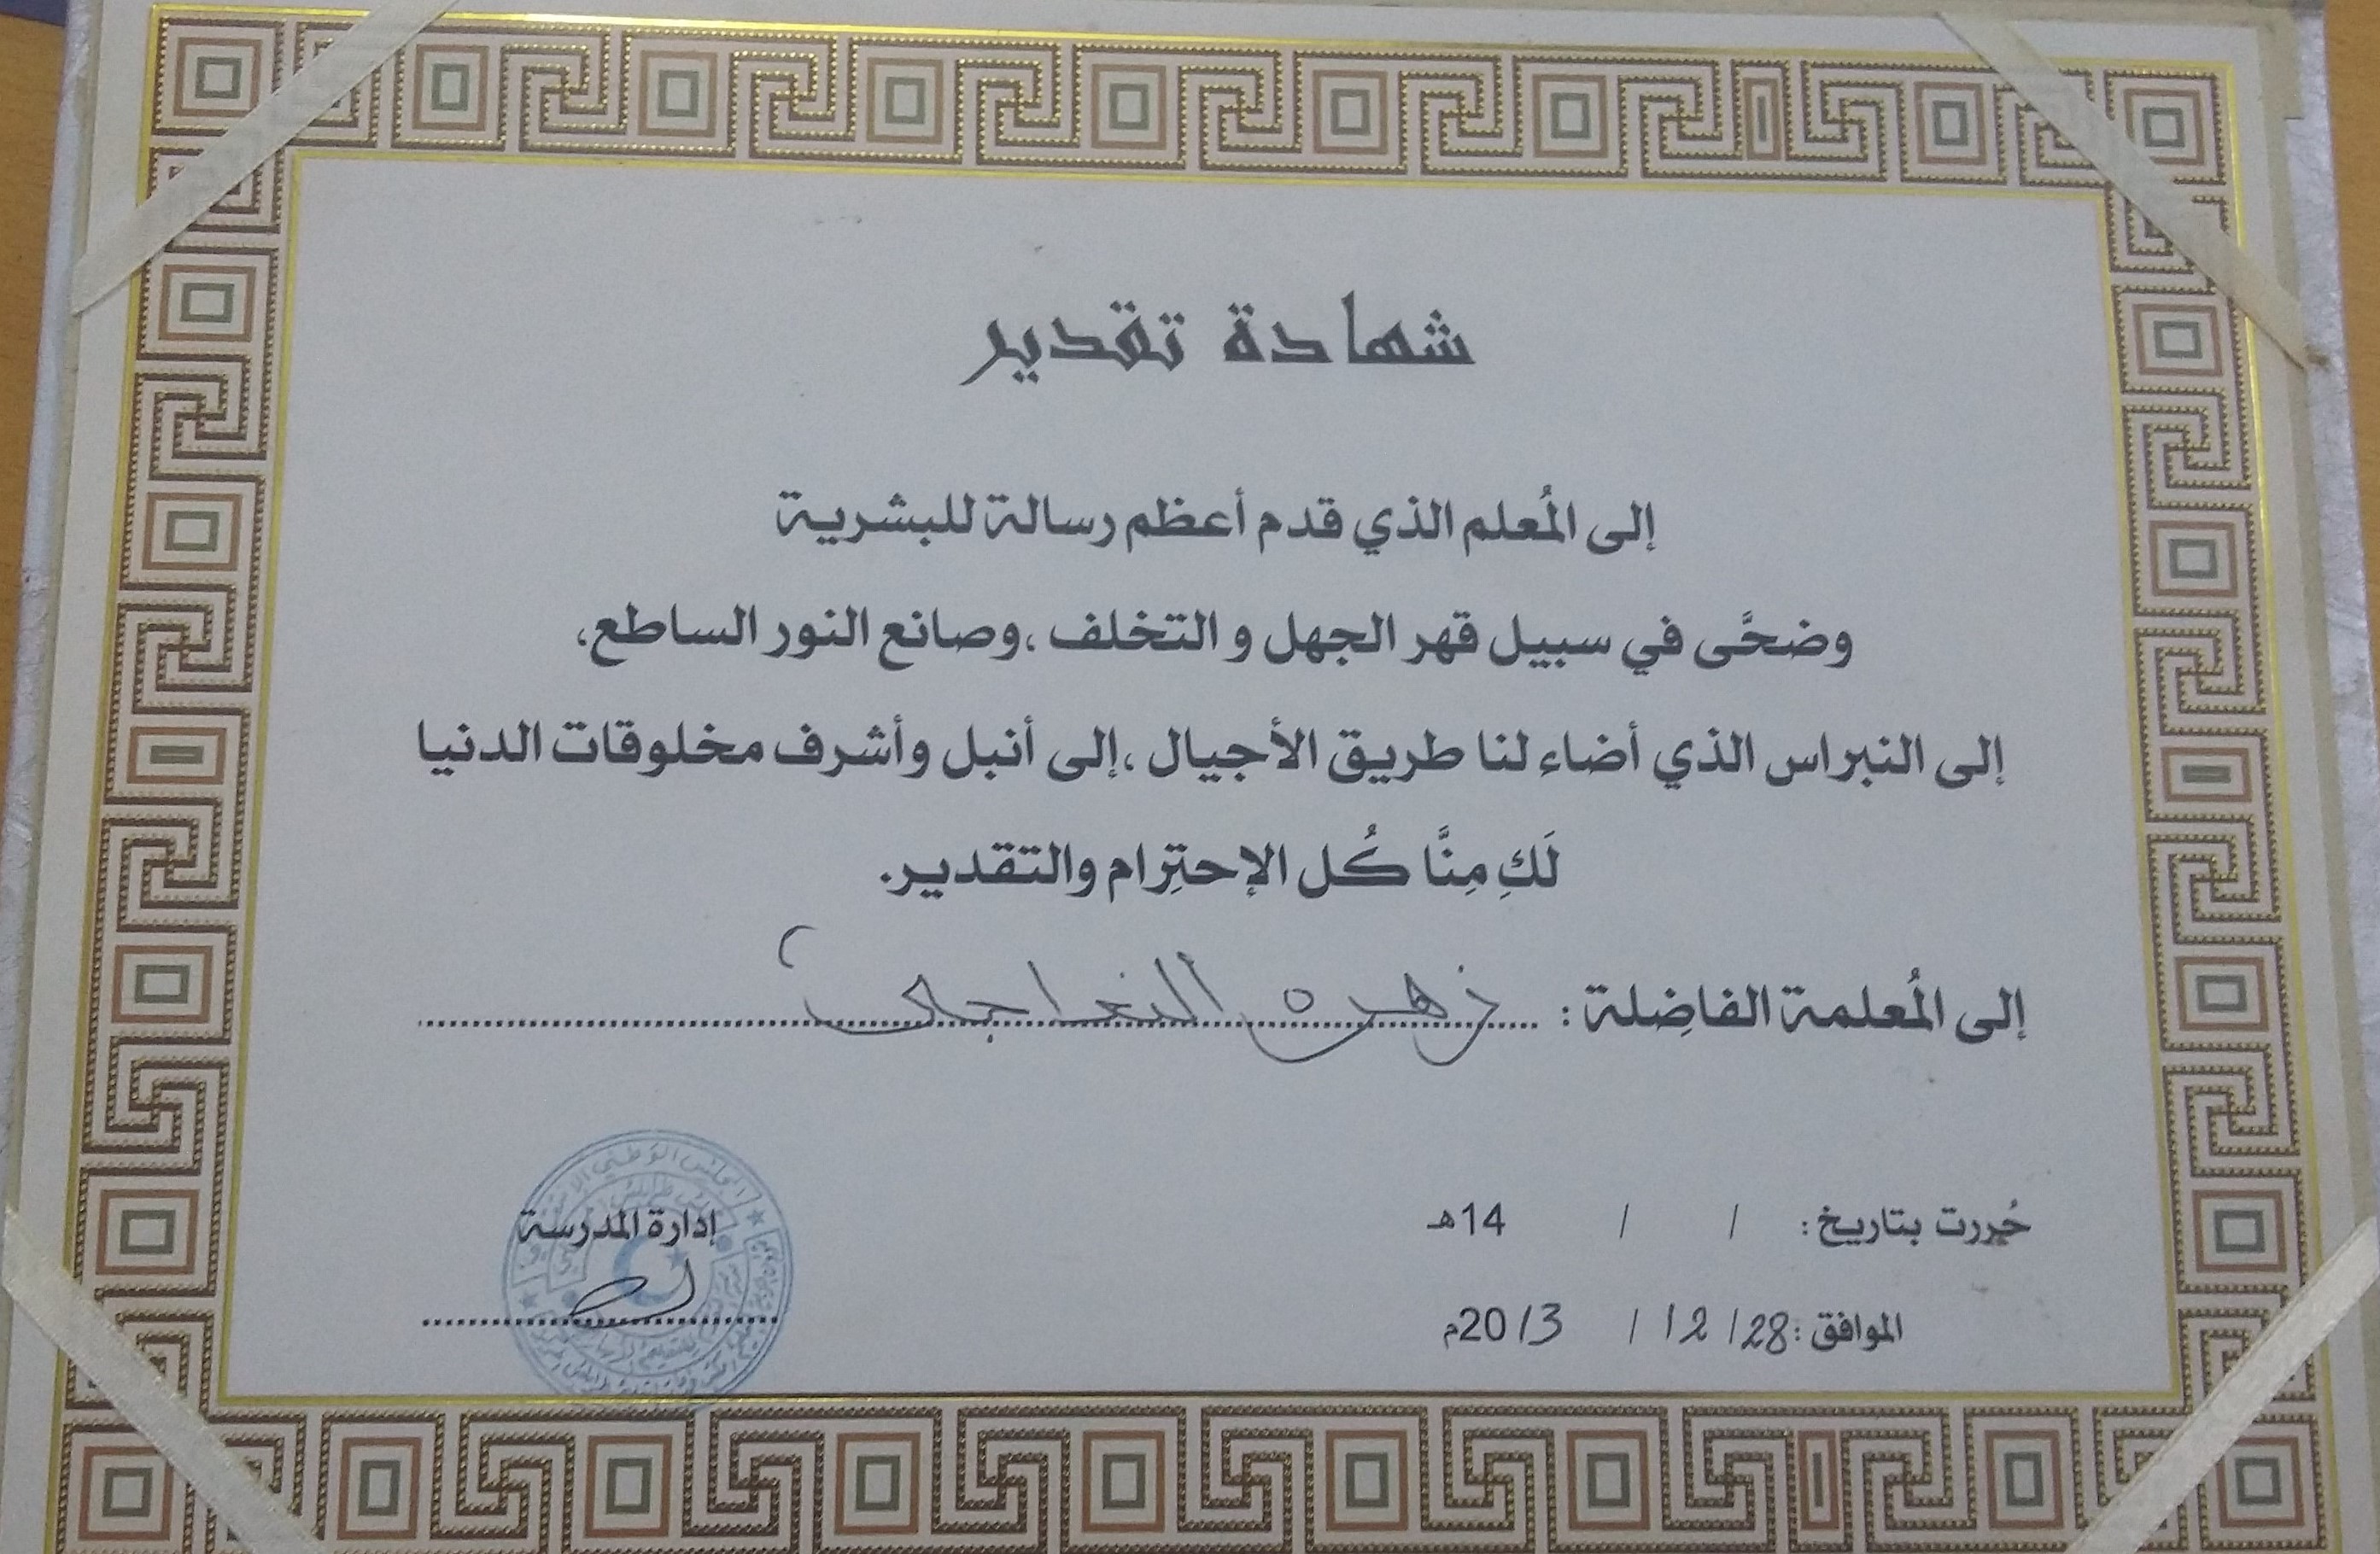 شهادة تقدير
إلى المُعلم الذي قدم أعظم رسالة للبشرية
وضحَّى في سبيل قهر الجهل و التخلف ،وصانع النور الساطع،
إلى النبراس الذي أضاء لنا طريق الأجيال ،إلى أنبل وأشرف مخلوقات الدنيا
لَكِ مِنَّا كُل الإحتِرام والتقدير.
إلى المُعلمة الفاضِلة : زهرة
حُررت بتاريخ: / / 14هـ
الموافق: 28/ 12 / 2013م
إدارة المدرسة